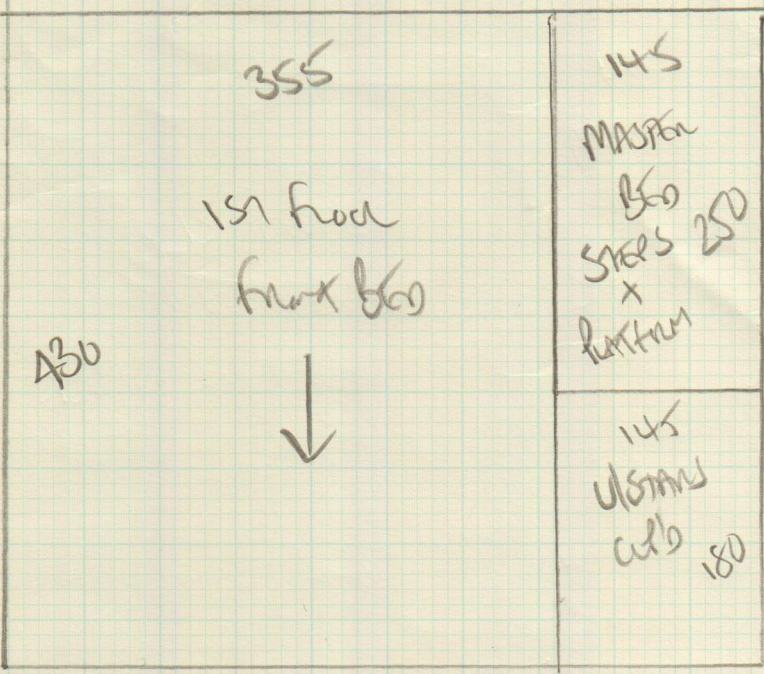 355
1ST FLOOR
FRONT BED
430
145
MASTER
BED
STEPS
250
X
PLATFORM
145
U/STAIRS
CUP'D
180